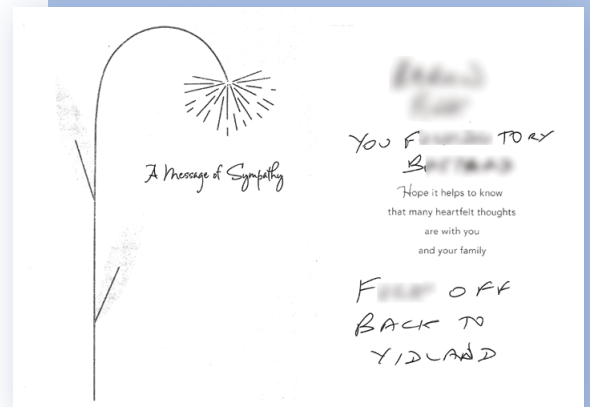 A Message of Sympathy
YOU F TORY
B
Hope it helps to know
that many heartfelt thoughts
are with you
and your family
F OFF
BACK TO
YIDLAND